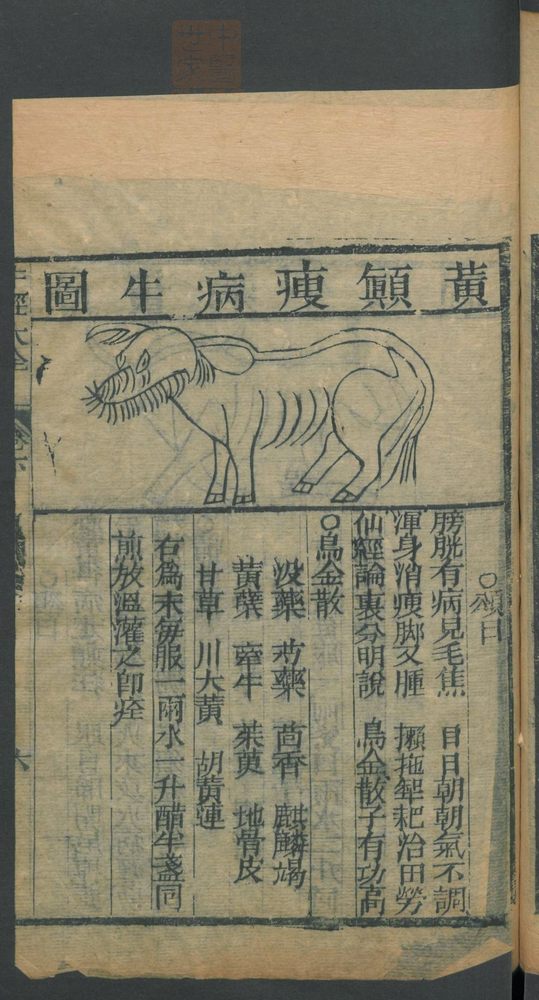 黃顙瘦病牛圖
○頌曰
膀胱有病見毛焦　日日朝朝氣不調
渾身消瘦脚又腫　攋拖犂耙治田勞
仙經論裏分明說　烏金散子有功高
○烏金散
没藥　芍藥　茴香　麒麟竭
黃蘗　牽牛　茱萸　地骨皮
甘草　川大黃　胡黃連
右爲末每服一兩水一升醋半盞同
煎放溫灌之即痊
牛經大全
卷下
六